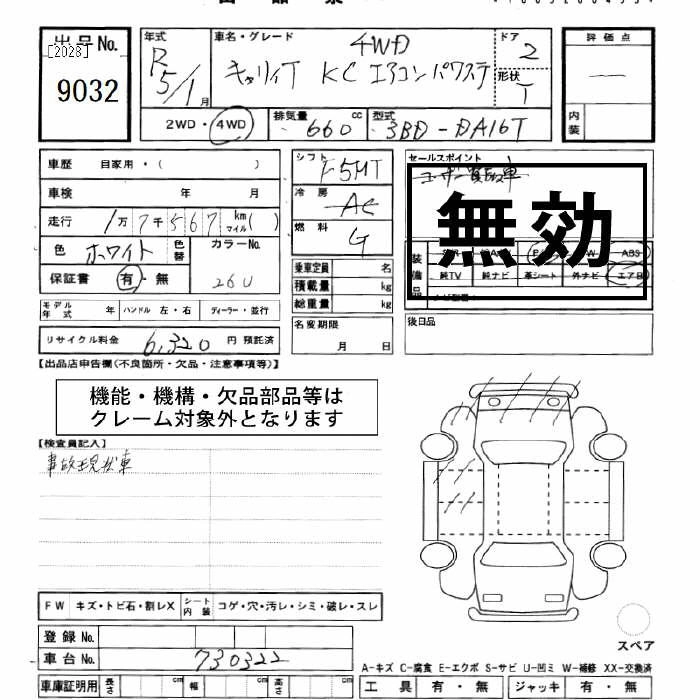 出品票
[2028]
出品No.
9032
年式
R5/1月
車名・グレード
4WD
キャリィT KC エアコン パワステ
ドア
2
形状
T
評価点
—
内装
2WD・4WD
排気量 660 cc
型式 3BD-DA16T
車歴 自家用・( )
車検 年 月
走行 1万7千567 km マイル ( )
色 ホワイト 色替
カラーNo. 26U
保証書 有・無
シフト F5MT
冷房 AC
燃料 G
乗車定員 名
積載量 kg
総重量 kg
セールスポイント
ユーザー買取車
無効
装備品
ABS
純TV 純ナビ 革シート 外ナビ エアB
モデル年式 年 ハンドル 左・右 ディーラー・並行
名変期限
月 日
後日品
リサイクル料金 6,320 円 預託済
【出品店申告欄(不良箇所・欠品・注意事項等)】
機能・機構・欠品部品等は
クレーム対象外となります
【検査員記入】
事故現状車
FW キズ・トビ石・割レX シート内装 コゲ・穴・汚レ・シミ・破レ・スレ
登録No.
車台No. 730322
スペア
A-キズ C-腐食 E-エクボ S-サビ U-凹ミ W-補修 XX-交換済
車庫証明用 長さ cm 幅 cm 高さ cm
工具 有・無 ジャッキ 有・無